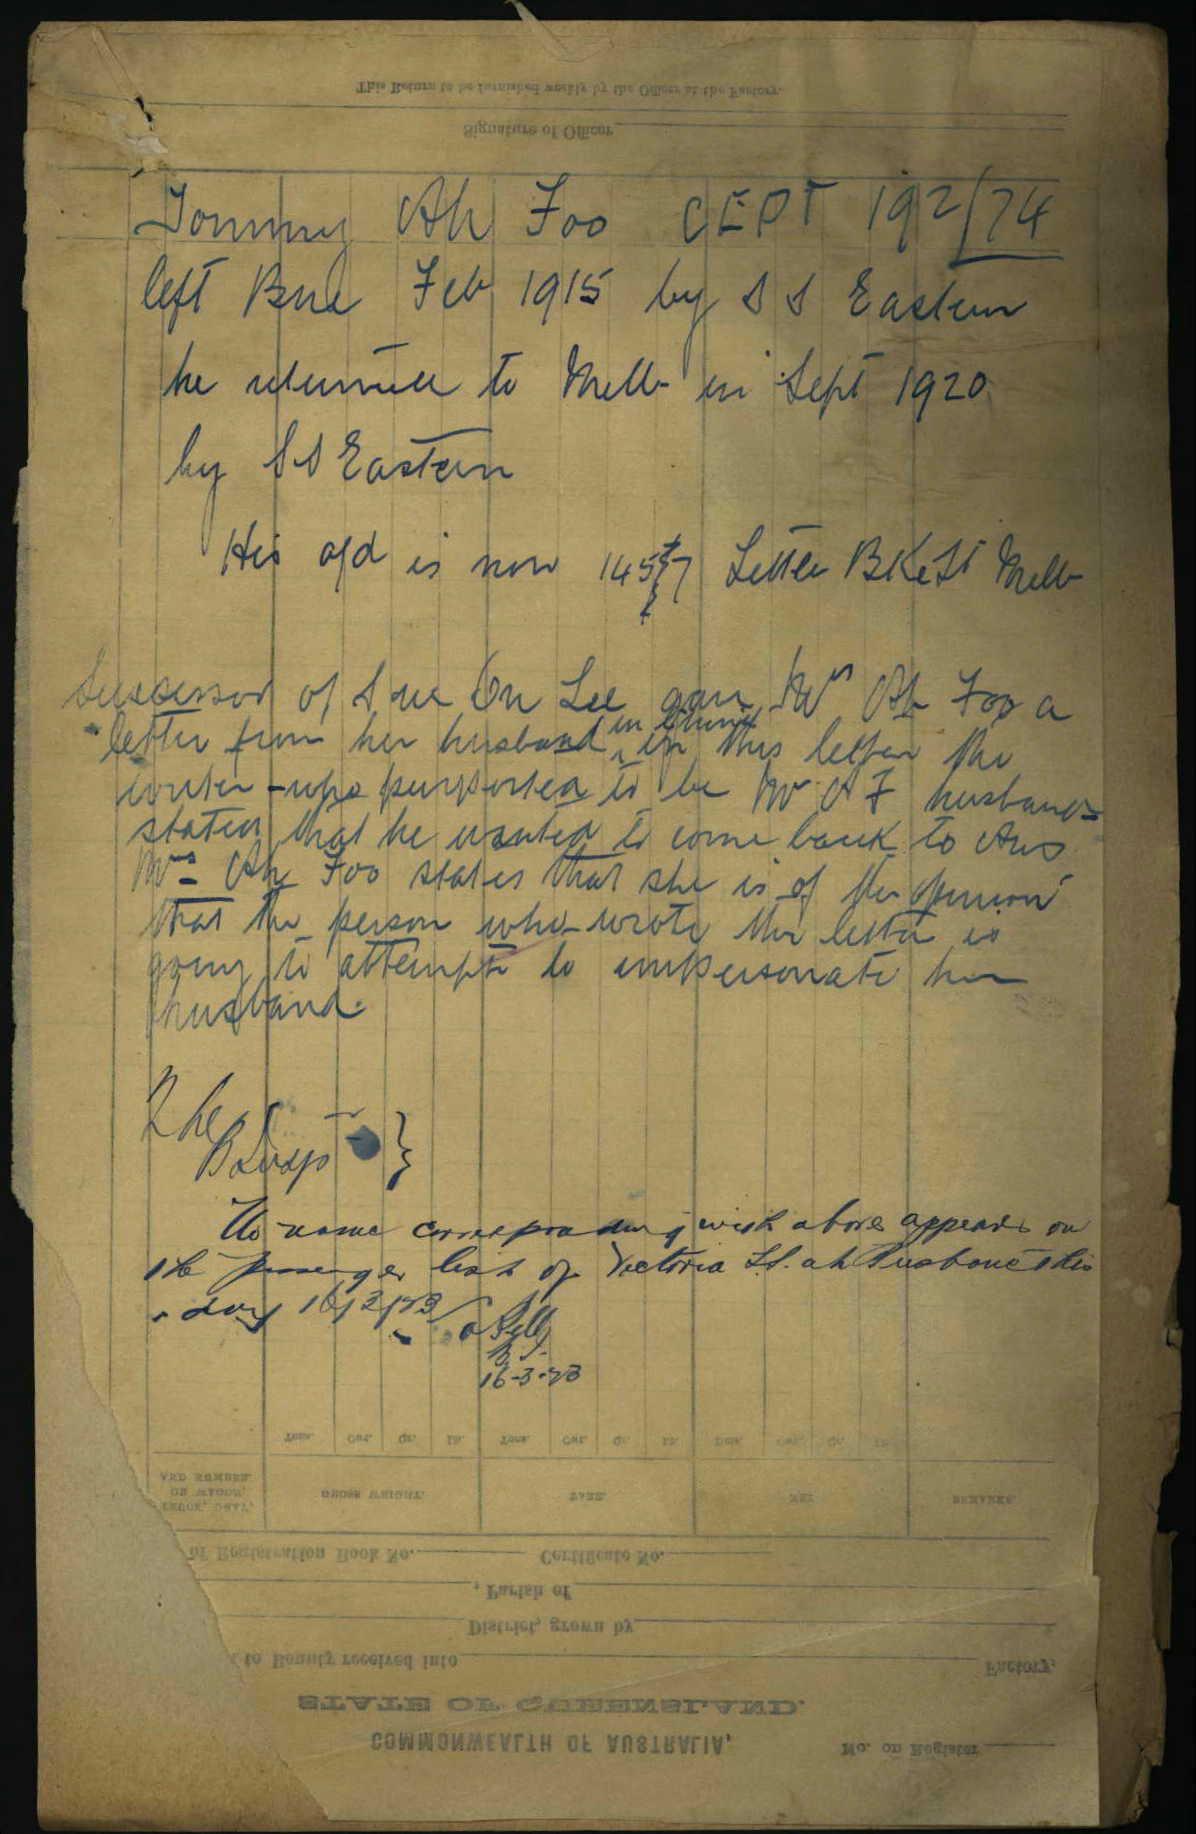 This Return to be furnished weekly by the Officer at the Factory.
Signature of Officer
Tommy Ah Foo CEDT 192/74
left Bne Feb 1915 by S S Eastern
he returned to Melb in Sept 1920
by S S Eastern
His old is now 145 / 7 Letter Melb
Successor of Sue On Lee gave Mrs Ah Foo a
in Chinese
letter from her husband in this letter the
writer - who purported to be Mrs A F husband -
stated that he wanted to come back to Aus
Mrs Ah Foo states that she is of the opinion
that the person who wrote the letter is
going to attempt to impersonate her
husband.
The
No name corresponding with above appears on
the passenger list of Victoria S.S. at Brisbane this
day 16/3/23
16-3-23
Tons. Cwt. Qr. Lb. Tons. Cwt. Qr. Lb. Tons. Cwt. Qr. Lb.
AND NUMBER
ON WAGON,
TRUCK, DRAY,
GROSS WEIGHT.
TARE.
NET
REMARKS.
of Registration Book No. Certificate No.
, Parish of
District, grown by
to Bounty received into Factory,
STATE OF QUEENSLAND.
COMMONWEALTH OF AUSTRALIA,
No. on Register